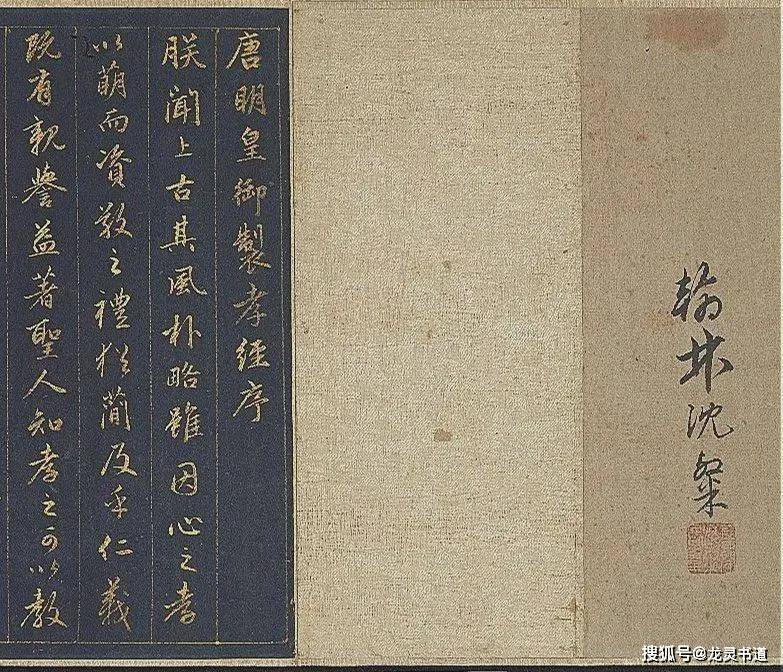 翰林沈粲
唐明皇御製孝經序
朕聞上古其風朴略雖因心之孝
以萌而資敬之禮猶簡及乎仁義
既有親譽益著聖人知孝之可以教
搜狐号@龙灵书道